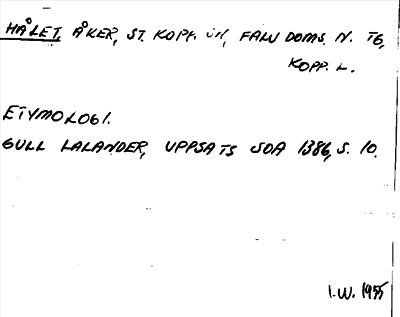 HÅLET, ÅKER, ST. KOPP. SN, FALU DOMS. N. TG,
KOPP. L.
ETYMOLOGI.
GULL LALANDER, UPPSATS SOA 1386, S. 10.
I.W. 1955